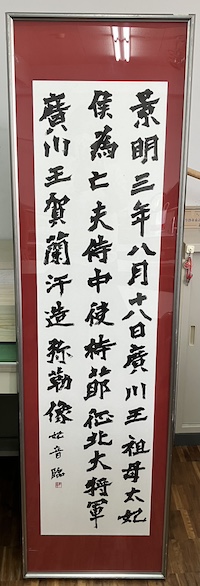 景明三年八月十八日廣川王祖母太妃
侯為亡夫侍中使持節征北大將軍
廣川王賀蘭汗造弥勒像 北音臨